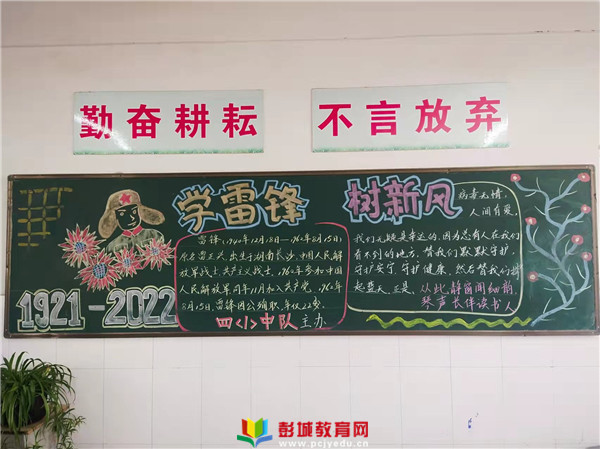 勤奋耕耘
不言放弃
学雷锋
树新风
病毒无情,
人间有爱。
雷锋,1940年12月18日—1962年8月15日,
原名雷正兴,出生于湖南长沙,中国人民解
放军战士,共产主义战士,1960年参加中国
人民解放军同年11月加入共产党,1962年
8月15日,雷锋因公殉职,年仅22岁。
四<1>中队主办
我们无疑是幸运的,因为总有人在我们
看不到的地方,替我们默默守护,
守护安宁,守护健康,然后替我们撑
起蓝天,正是:从此静窗闻细韵
琴声长伴读书人
1921-2022
彭城教育网
www.pcjyedu.cn